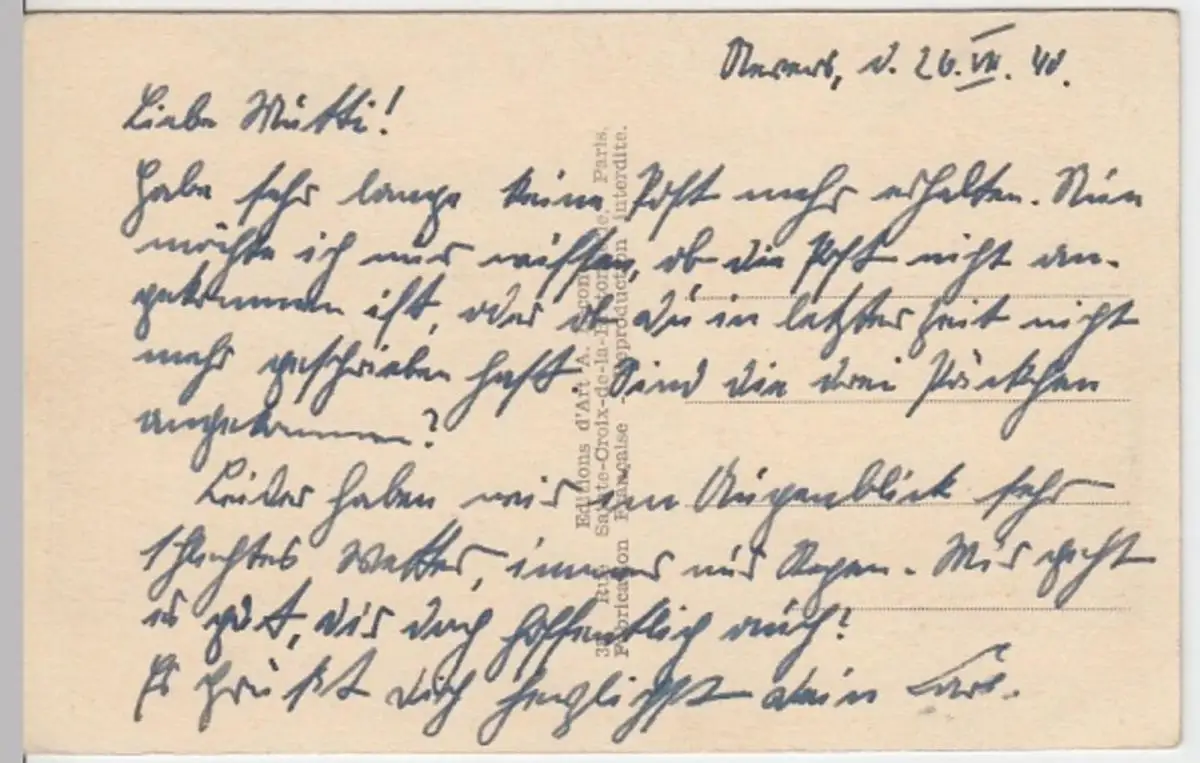 Nevers, d. 26.VII.40.
Liebe Mutti!
Habe sehr lange keine Post mehr erhalten. Nun
möchte ich nur wissen, ob die Post nicht an-
gekommen ist, oder ob du in letzter Zeit nicht
mehr geschrieben hast. Sind die drei Päckchen
angekommen?
Leider haben wir im Augenblick sehr
schlechtes Wetter, immer nur Regen. Mir geht
es gut, dir doch hoffentlich auch?
Es grüßt dich herzlichst dein
Editions d'Art A.
Rue Sainte-Croix-de-la-Bretonnerie, Paris.
Fabrication Française - Reproduction interdite.